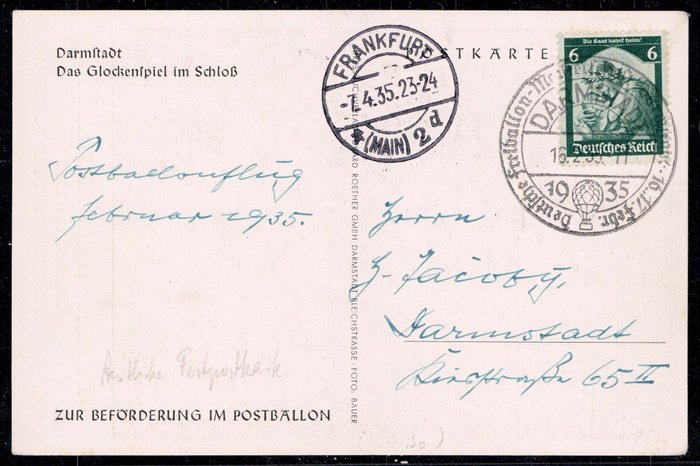 Darmstadt
Das Glockenspiel im Schloß
POSTKARTE
Die Saar kehrt heim!
6 6
Deutsches Reich
FRANKFURT
-7.4.35.23-24
*(MAIN) 2d
Deutsche Freiballon- 16.17. Febr.
DARMSTADT
16.2.35.-11
1935
Postballonflug
februar 1935.
ROETHER GMBH DARMSTADT BLEICHSTRASSE · FOTO: BAUER
Herrn
H. Jacoby,
Darmstadt
65 II
Amtliche Festpostkarte
ZUR BEFÖRDERUNG IM POSTBALLON